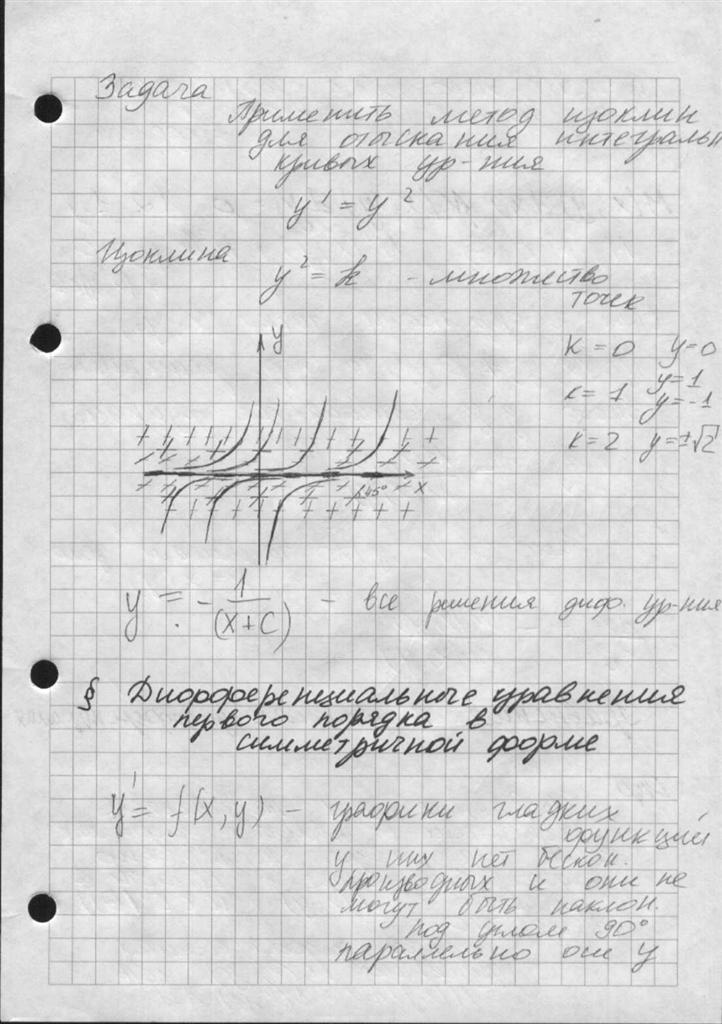 Задача
Применить метод изоклин
для отыскания интегральн
кривых ур-ния
y' = y²
Изоклина
y² = k - множество
точек
K = 0 y = 0
k = 1 y = 1
y = -1
k = 2 y = ±√2
y
x
45°
y = - 1/(x+C) - все решения диф. ур-ния
§ Дифференциальные уравнения
первого порядка в
симметричной форме
y' = f(x, y) - графики гладких
функций
у них нет бескон.
производных и они не
могут быть наклон.
под углом 90°
параллельно оси y